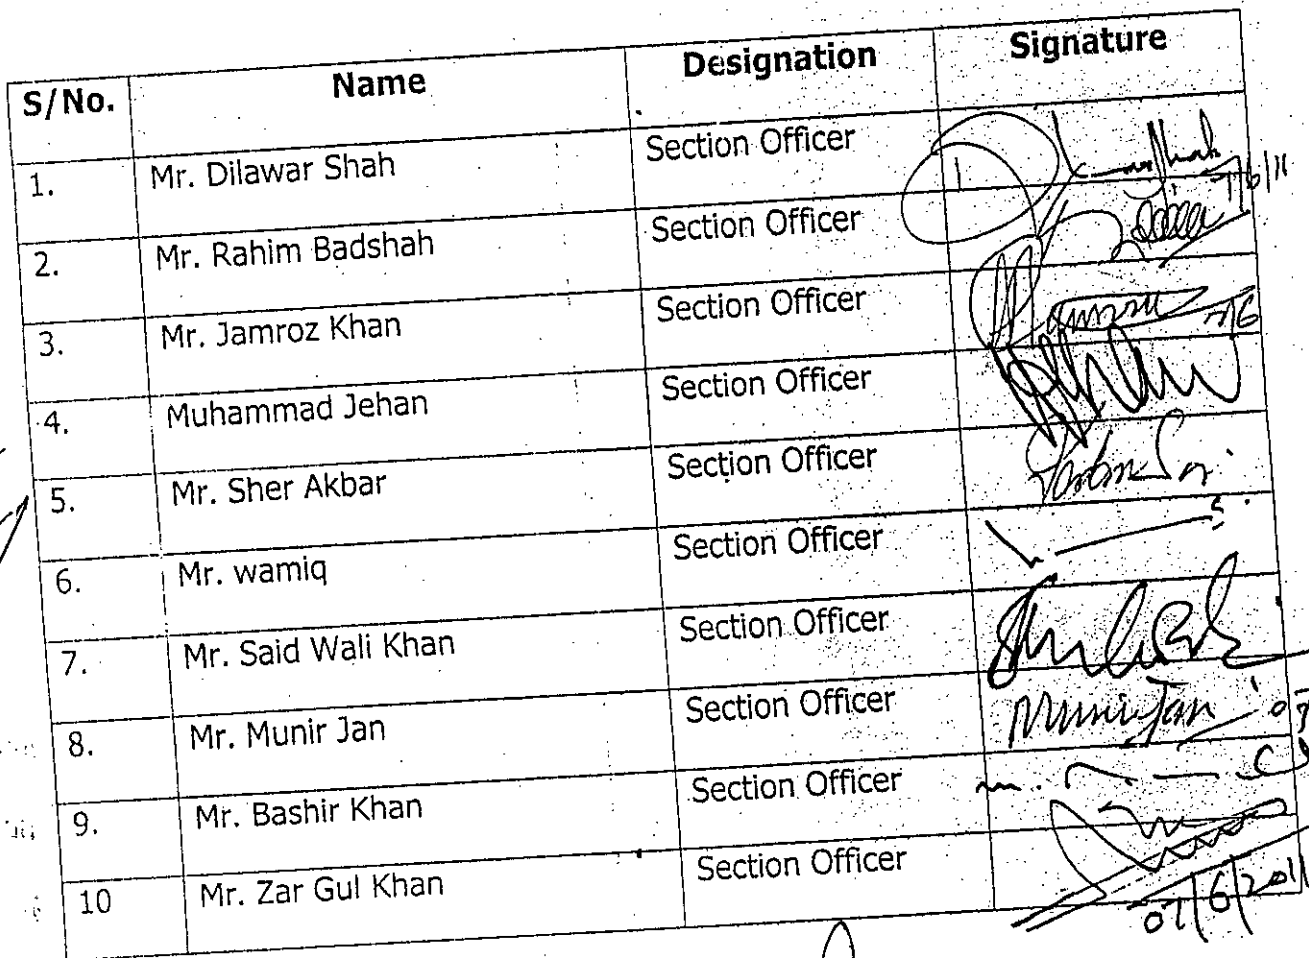 S/No. Name Designation Signature
1. Mr. Dilawar Shah Section Officer 7/6/11
2. Mr. Rahim Badshah Section Officer
3. Mr. Jamroz Khan Section Officer 7/6
4. Muhammad Jehan Section Officer
5. Mr. Sher Akbar Section Officer
6. Mr. wamiq Section Officer
7. Mr. Said Wali Khan Section Officer
8. Mr. Munir Jan Section Officer Munir Jan
9. Mr. Bashir Khan Section Officer
10 Mr. Zar Gul Khan Section Officer
07/6/2011